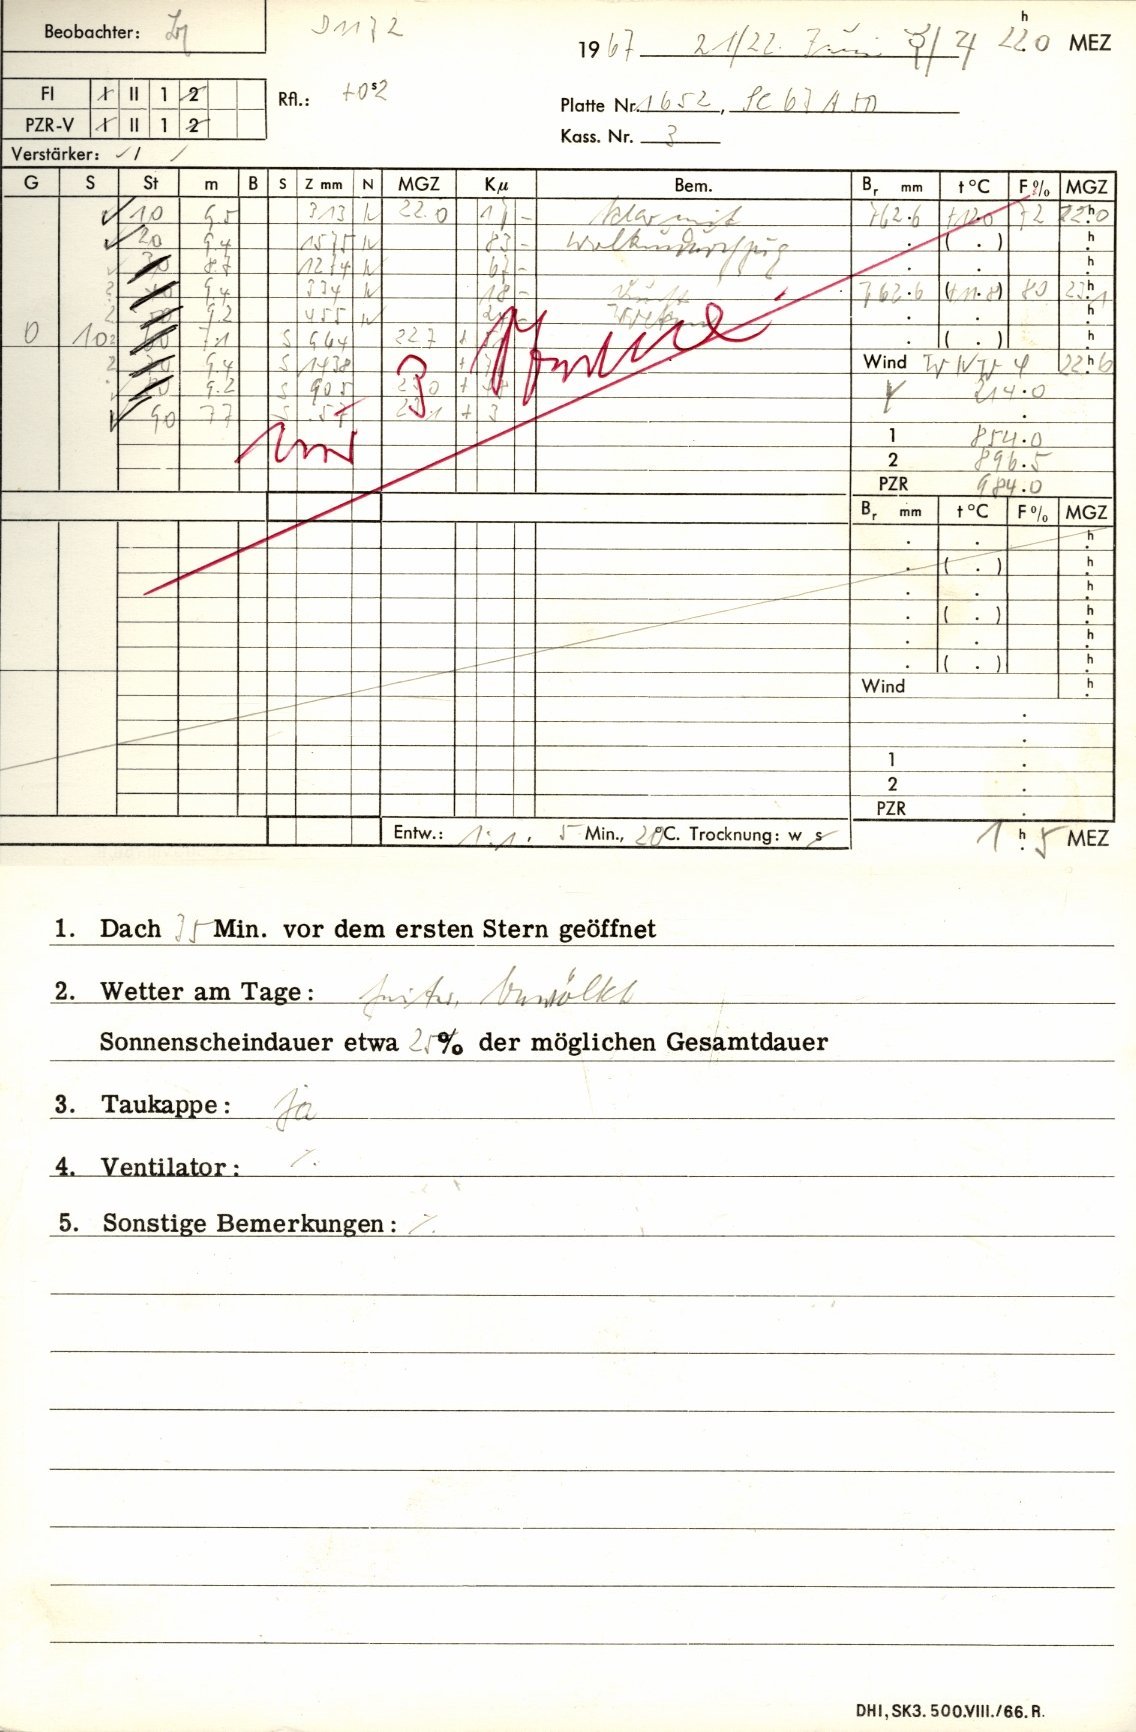 Beobachter:
1967 21/22. Juni 22.0 h MEZ
FI I II 1 2
Rfl.: +0s2
PZR-V I II 1 2
Platte Nr. 1652, SC 67 A 50
Kass. Nr. 3
Verstärker:
G S St m B S Z mm N MGZ Kμ Bem. Br mm t °C F % MGZ
10 9.5 313 N 22.0 17 - klar mit 762.6 +12.0 72 22.0 h
20 9.4 1575 N 83 - Wolkendurchzug . ( . ) h
30 8.7 1274 N 67 - . . h
40 9.4 334 N 18 - 762.6 (+11.8) 80 23.1 h
50 9.2 455 N . . h
0 10 60 7.1 S 964 22.7 + . ( . ) h
70 9.4 S 1438 + Wind WNW 4 22.6 h
80 9.2 S 905 23.0 + 214.0
90 7.7 S 57 23.1 + 3 .
nur 3 Sterne
1 854.0
2 896.5
PZR 984.0
Br mm t °C F % MGZ
. . h
. ( . ) h
. . h
. ( . ) h
. . h
. ( . ) h
Wind h
.
.
1 .
2 .
PZR .
Entw.: 1:1, 5 Min., 20°C. Trocknung: w s
1 h 5 MEZ
1. Dach 35 Min. vor dem ersten Stern geöffnet
2. Wetter am Tage: heiter, bewölkt
Sonnenscheindauer etwa 25% der möglichen Gesamtdauer
3. Taukappe: ja
4. Ventilator: ⁒
5. Sonstige Bemerkungen: ⁒
DHI, SK3. 500.VIII./66. R.